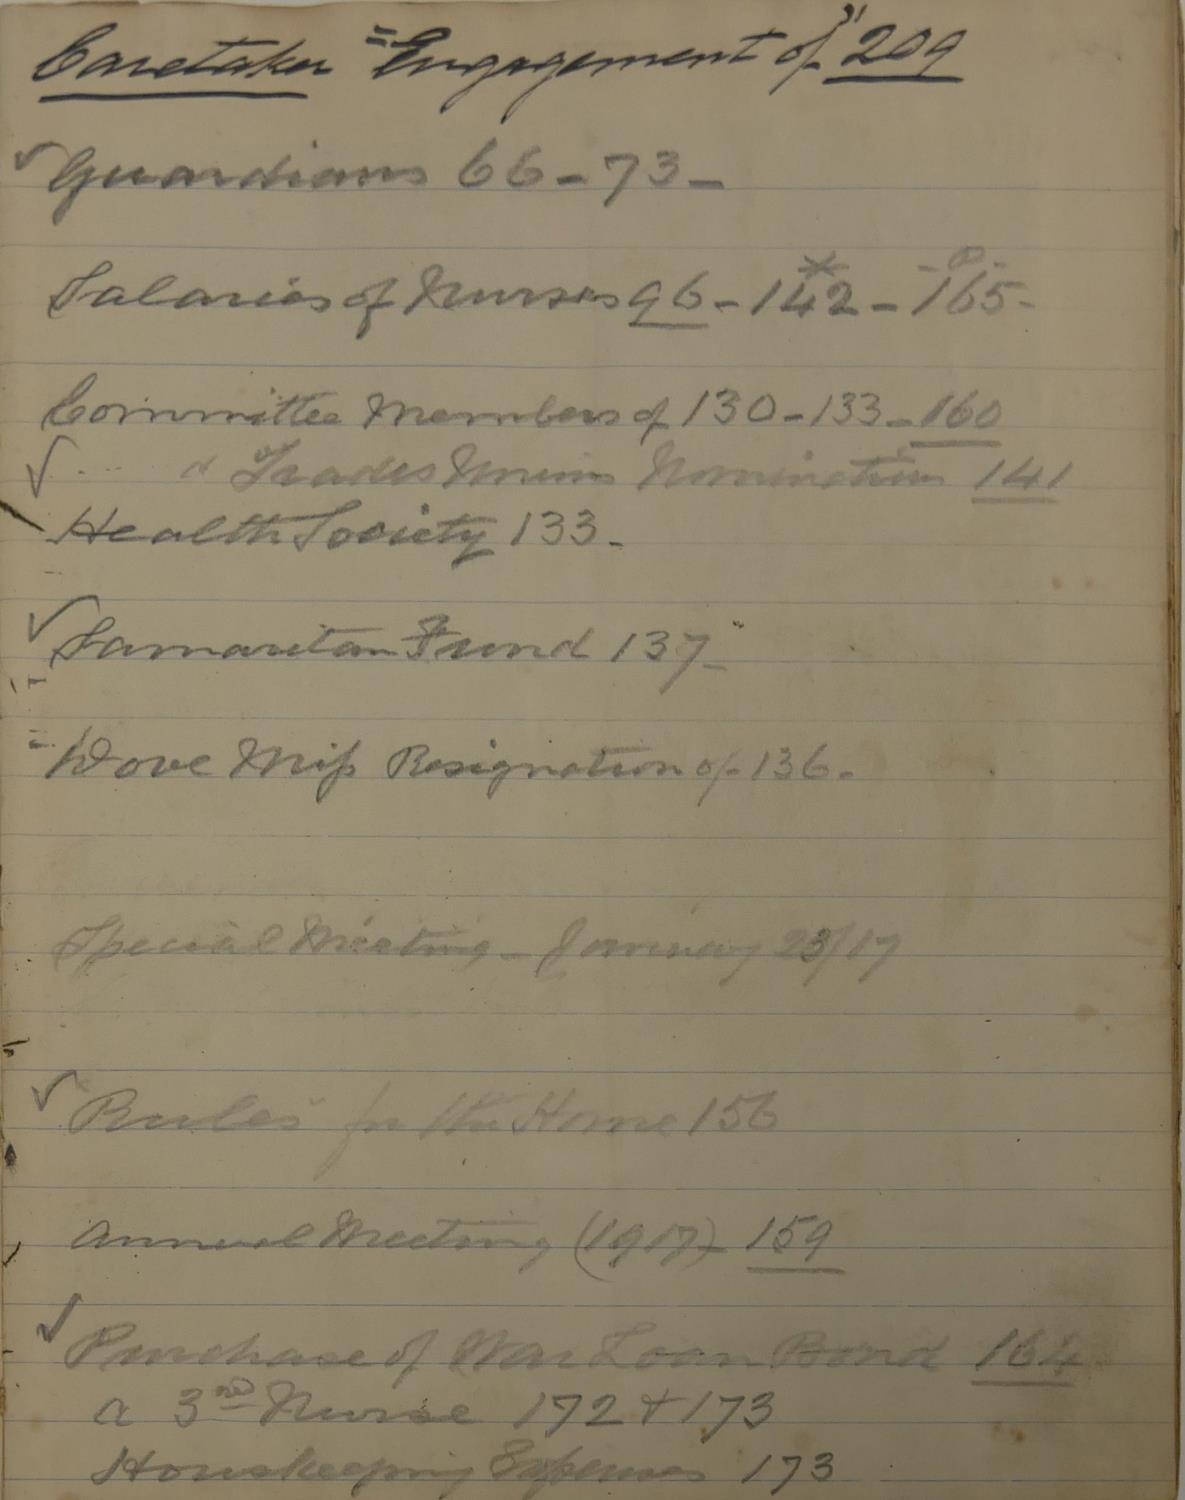 Caretaker = Engagement of "209
✓ Guardians 66-73-
Salaries of Nurses 96-142-165-
Committee Members of 130-133-160
✓ " Trades Union Nomination 141
Health Society 133-
✓ Samaritan Fund 137-
Dove Miss Resignation of 136-
Special Meeting - January 23/17
✓ Rules for the Home 156
Annual Meeting (1917) 159
✓ Purchase of War Loan Bond 164
a 3rd Nurse 172 + 173
Housekeeping Expenses 173